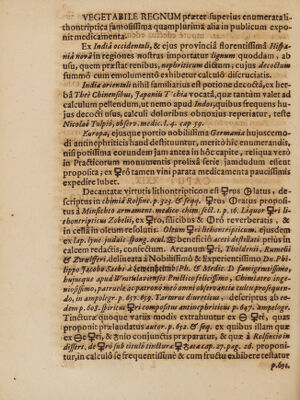 VEGETABILE REGNUM præter superius enumerata li-
thontriptica famosissima quamplurima alia in publicum expo-
nit medicamenta.
Ex Indiâ occidentali, & ejus provinciâ florentissimâ Hispa-
niâ novâ in regiones nostras importatur lignum quoddam, ab
usu, quem præstat renibus, nephriticum dictum; cujus decoctum
summô cum emolumentô exhibetur calculô discruciatis.
India orientalis nihil familiarius est potione decoctâ, ex her-
bâ Thé Chinensibus, Japoniis T'chia vocatâ, quæ tantùm valet ad
calculum pellendum, ut nemo apud Indos, quibus frequens hu-
jus decocti usus, calculi doloribus obnoxius reperiatur, teste
Nicolaô Tulpiô, observ. medic. l. 4. cap 59.
Europa, ejusque portio nobilissima Germania hujuscemo-
di antinephriticis haud destituuntur, meritò hîc enumerandis,
nisi potissima eorundem jam antea in hôc capite, reliqua verò
in Practicorum monumentis prolixâ serie jamdudum essent
proposita; ex tamen vini parata medicamenta paucissimis
expedire lubet.
Decantatæ virtutis lithontripticum est latus, de-
scriptus in chimiâ Rolfinc. p. 323. & seqq. ratus propositus
à Minschero armament. medico chim. sect. 1. p. 16. Liquor li-
thontripticus Zobelii, ex silicibus & reverberatis, &
in cella in oleum resolutis. Oleum lithontripticum, ejusdem
ex lap. lync. judaic. spong. ocul. beneficiô aceti destillati prius in
calcem redactis, conficitur. Arcanum Theldenii, Kunrathi
& Zwelfferi, delineata à Nobilissimô & Experientissimo Dn. Phi-
lippo Jacobo Sachs à Lewenheimb Ph. & Medic. D famigeratissimo,
hujusque apud Wratislavienses Practico felicissimo, Chimiatro inge-
niosissimo, patruele ac patrono meô omni observantiæ cultu prosequen-
do, in ampelogr. p. 657. 659. Tartarus diureticus, descriptus ab eo-
dem p. 608. spiritus compositus antinephriticus p. 647. ampelogr.
Tincturæ quoque variis modis extrahuntur ex quas
proponit prælaudatus autor. p. 652. & seq. ex quibus illam quæ
ex & & vini conjunctis præparatur, & quæ à Rolfincio in
dissert. de sub titulô tinct. acea cap. 27. pag. 26. proponi-
tur, in calculô se frequentissimè & cum fructu exhibere testatur
p. 651.